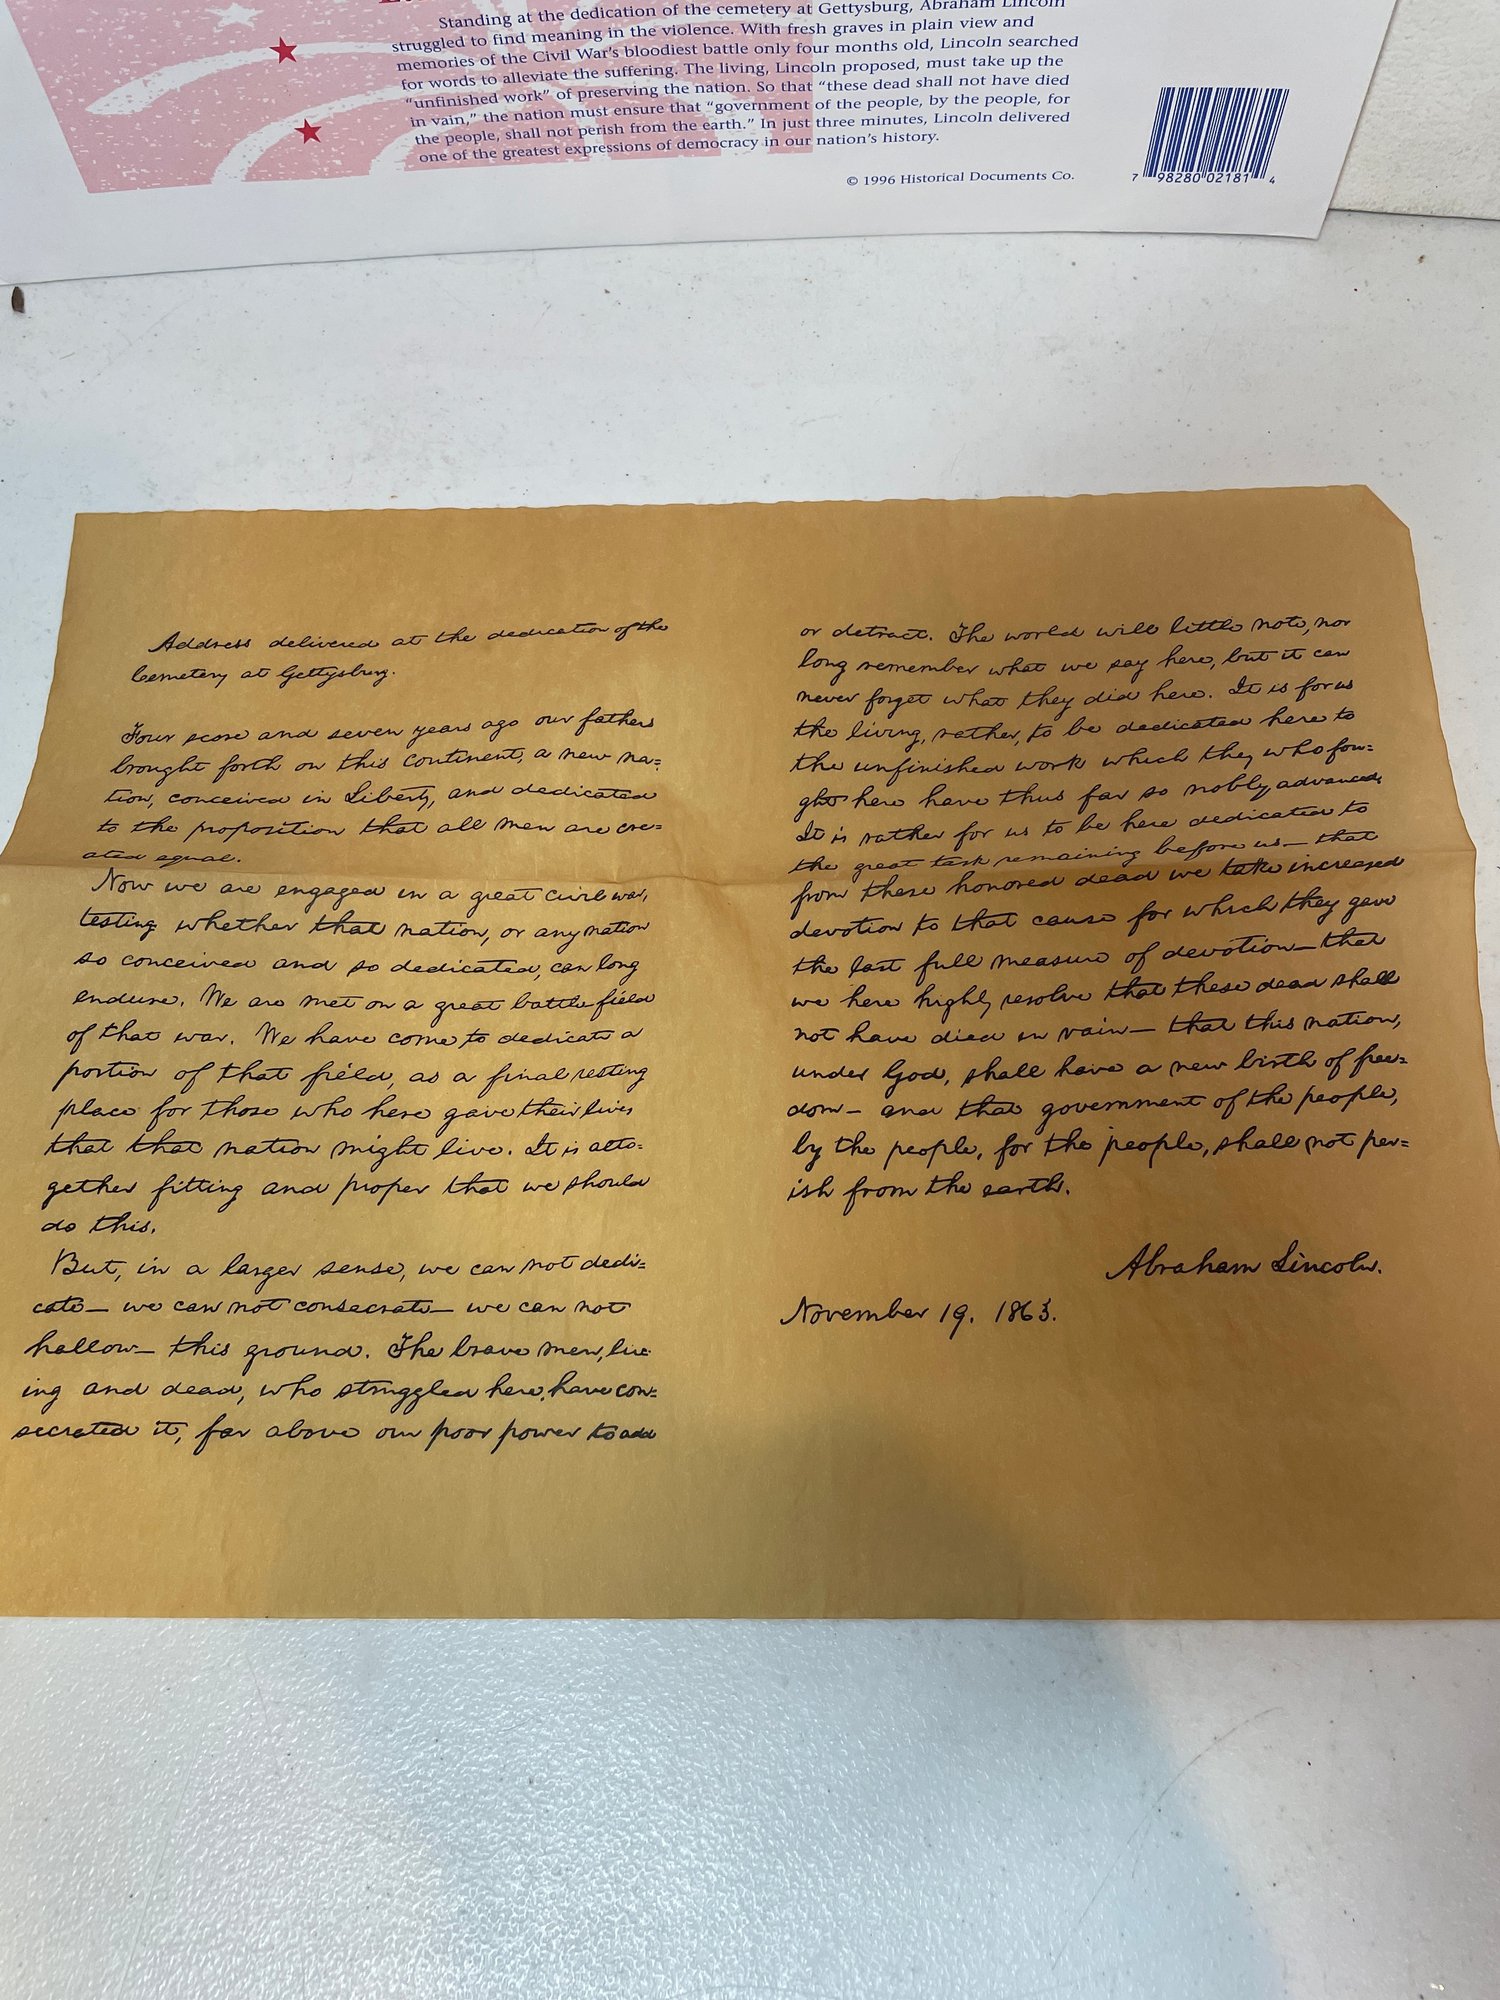 Standing at the dedication of the cemetery at Gettysburg, Abraham Lincoln
struggled to find meaning in the violence. With fresh graves in plain view and
memories of the Civil War's bloodiest battle only four months old, Lincoln searched
for words to alleviate the suffering. The living, Lincoln proposed, must take up the
"unfinished work" of preserving the nation. So that "these dead shall not have died
in vain," the nation must ensure that "government of the people, by the people, for
the people, shall not perish from the earth." In just three minutes, Lincoln delivered
one of the greatest expressions of democracy in our nation's history.
© 1996 Historical Documents Co.
7 98280 02181 4
Address delivered at the dedication of the
Cemetery at Gettysburg.
Four score and seven years ago our fathers
brought forth on this continent, a new na=
tion, conceived in Liberty, and dedicated
to the proposition that all men are cre=
ated equal.
Now we are engaged in a great civil war,
testing whether that nation, or any nation
so conceived and so dedicated, can long
endure. We are met on a great battle-field
of that war. We have come to dedicate a
portion of that field, as a final resting
place for those who here gave their lives
that that nation might live. It is alto=
gether fitting and proper that we should
do this.
But, in a larger sense, we can not dedi=
cate— we can not consecrate— we can not
hallow— this ground. The brave men, liv=
ing and dead, who struggled here, have con=
secrated it, far above our poor power to add
or detract. The world will little note, nor
long remember what we say here, but it can
never forget what they did here. It is for us
the living, rather, to be dedicated here to
the unfinished work which they who fou=
ght here have thus far so nobly advanced.
It is rather for us to be here dedicated to
the great task remaining before us— that
from these honored dead we take increased
devotion to that cause for which they gave
the last full measure of devotion— that
we here highly resolve that these dead shall
not have died in vain— that this nation,
under God, shall have a new birth of free=
dom— and that government of the people,
by the people, for the people, shall not per=
ish from the earth.
Abraham Lincoln.
November 19. 1863.